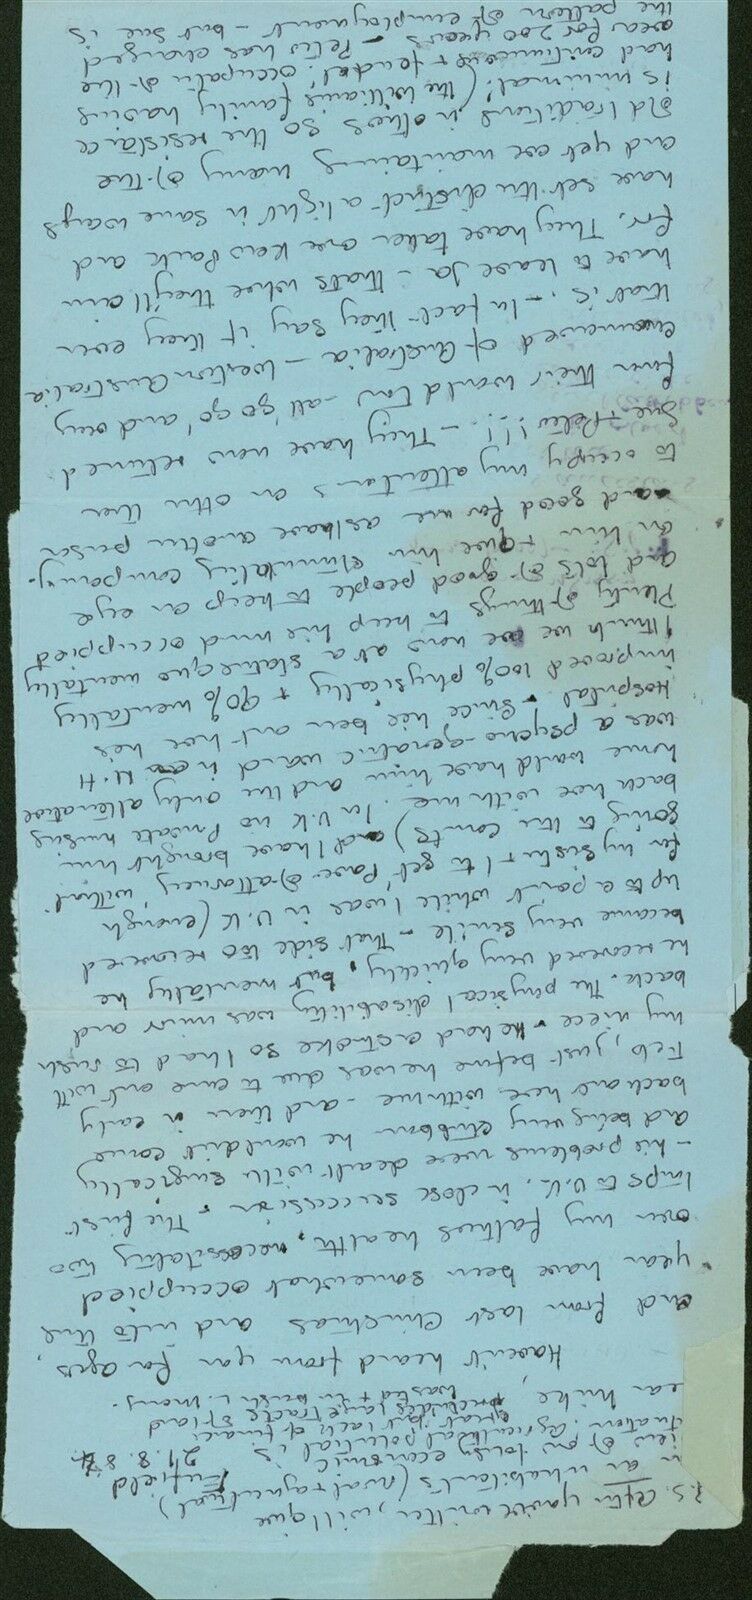 P.S. After you've written, will give
an inhabitants (not a tycoon's)
view of Ja's today economic Enfield
situation. Agricultural potential is 21.8.84
great but lack of finance
precludes large tracts of land
wasted + in bush.
ear Mike,
Haven't heard from you for ages,
and from last Christmas and into this
year have been somewhat occupied
over my fathers health, necessitating two
trips to U.K. in close succession. The first
- his problems were dealt with surgically
and being very stubborn he wouldn't come
back out here with me - and then in early
Feb, just before he was due to come out with
my niece he had a stroke so I had to rush
back. The physical disability was minor and
he recovered very quickly, but mentally he
became very senile - That side too recovered
up to a point while I was in U.K. (enough
for my sister + I to get Pow. of Attorney, without
going to the courts) and I have brought him
back here with me. In U.K. no private nursing
home would have him and the only alternative
was a psycho-geriatric ward in N.H.
Hospital. Since he's been out here he's
improved 100% physically + 90% mentally
I think we are now at a status quo mentally
Plenty of things to keep his mind occupied
and lots of good people to keep an eye
on him + give him stimulating company.
and good for me as have another person
to occupy my attentions on other than
Sue + Peter!!! - They have now returned
from their world tour - all 'go go' and very
enamoured of Australia - Western Australia
that is. - In fact they say if they ever
have to leave Ja - thats where they'll aim
for. They have taken over Kew Park and
have set this district alight in some ways
and yet are maintaining many of the
old traditions in others so the resistance
is minimal. (The Williams family having
had continuous + feudal occupation of the
area for 200 years - Peter has changed
the pattern of employment - but Sue is